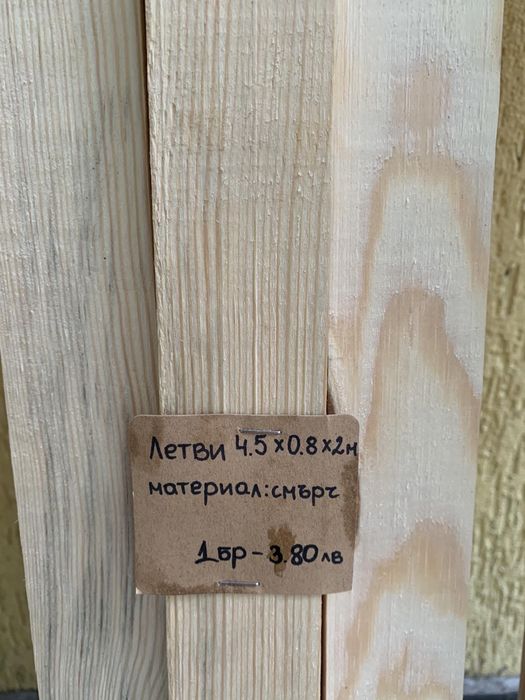 Летви 4.5x0.8x2м
материал:смърч
1бр-3.80лв